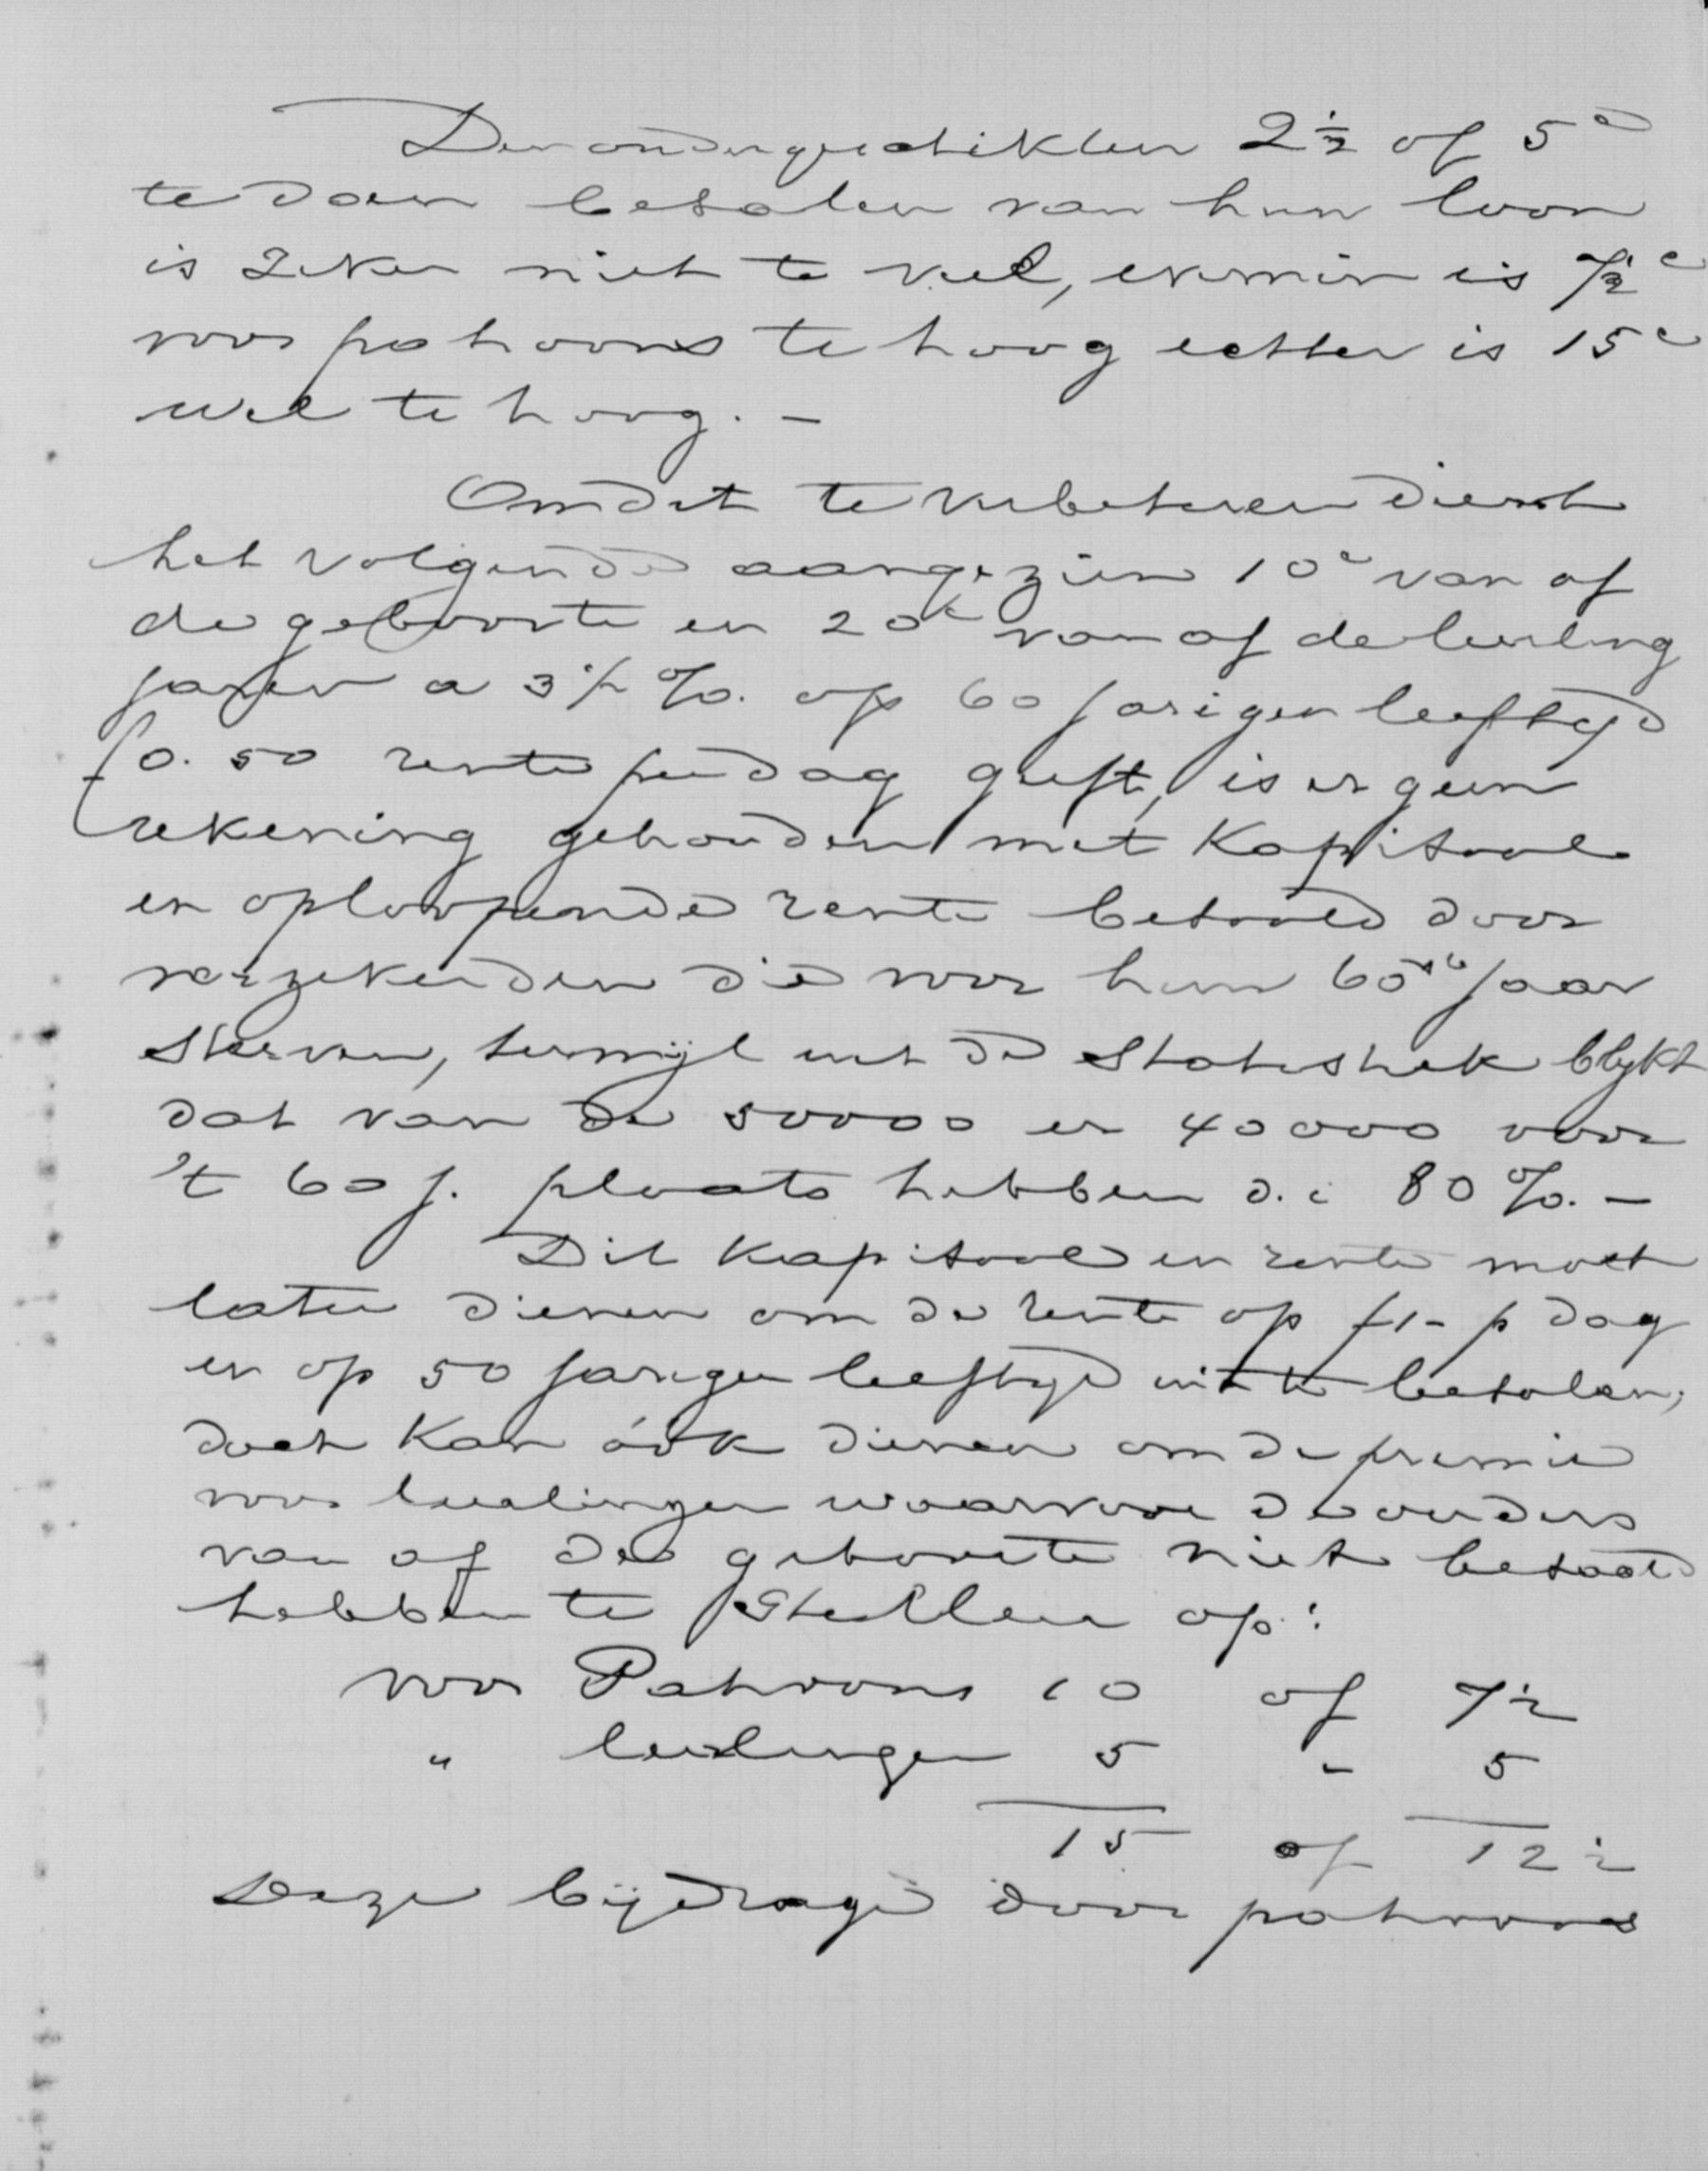 Den ondergeschikten 2½ of 5 c
te doen betalen van hun loon
is zeker niet te veel, evenmin is 7½ c
voor patroons te hoog echter is 15 c
wel te hoog. –
Om dat te verbeteren dient
het volgende aangezien 10 c van af
de geboorte en 20 c van af de leerling
jaren a 3½ %. op 60 jarigen leeftijd
f 0.50 rente per dag geeft, is er geen
rekening gehouden met Kapitaal
en oploopende rente betaald door
verzekerden die voor hun 60ste jaar
sterven, terwijl uit de Statistiek blijkt
dat van de 50000 er 40000 voor
't 60 j. plaats hebben d.i 80 %. –
Dit Kapitaal en rente moet
later dienen om de rente op f 1- p dag
en op 50 jarigen leeftijd uit te betalen,
doch kan óók dienen om de premie
voor leerlingen waarvoor de ouders
van af de geboorte niet betaald
hebben te Stellen op:
voor Patroons 10 of 7½
" leerlingen 5 - 5
15 of 12½
Deze bijdrage door patroons